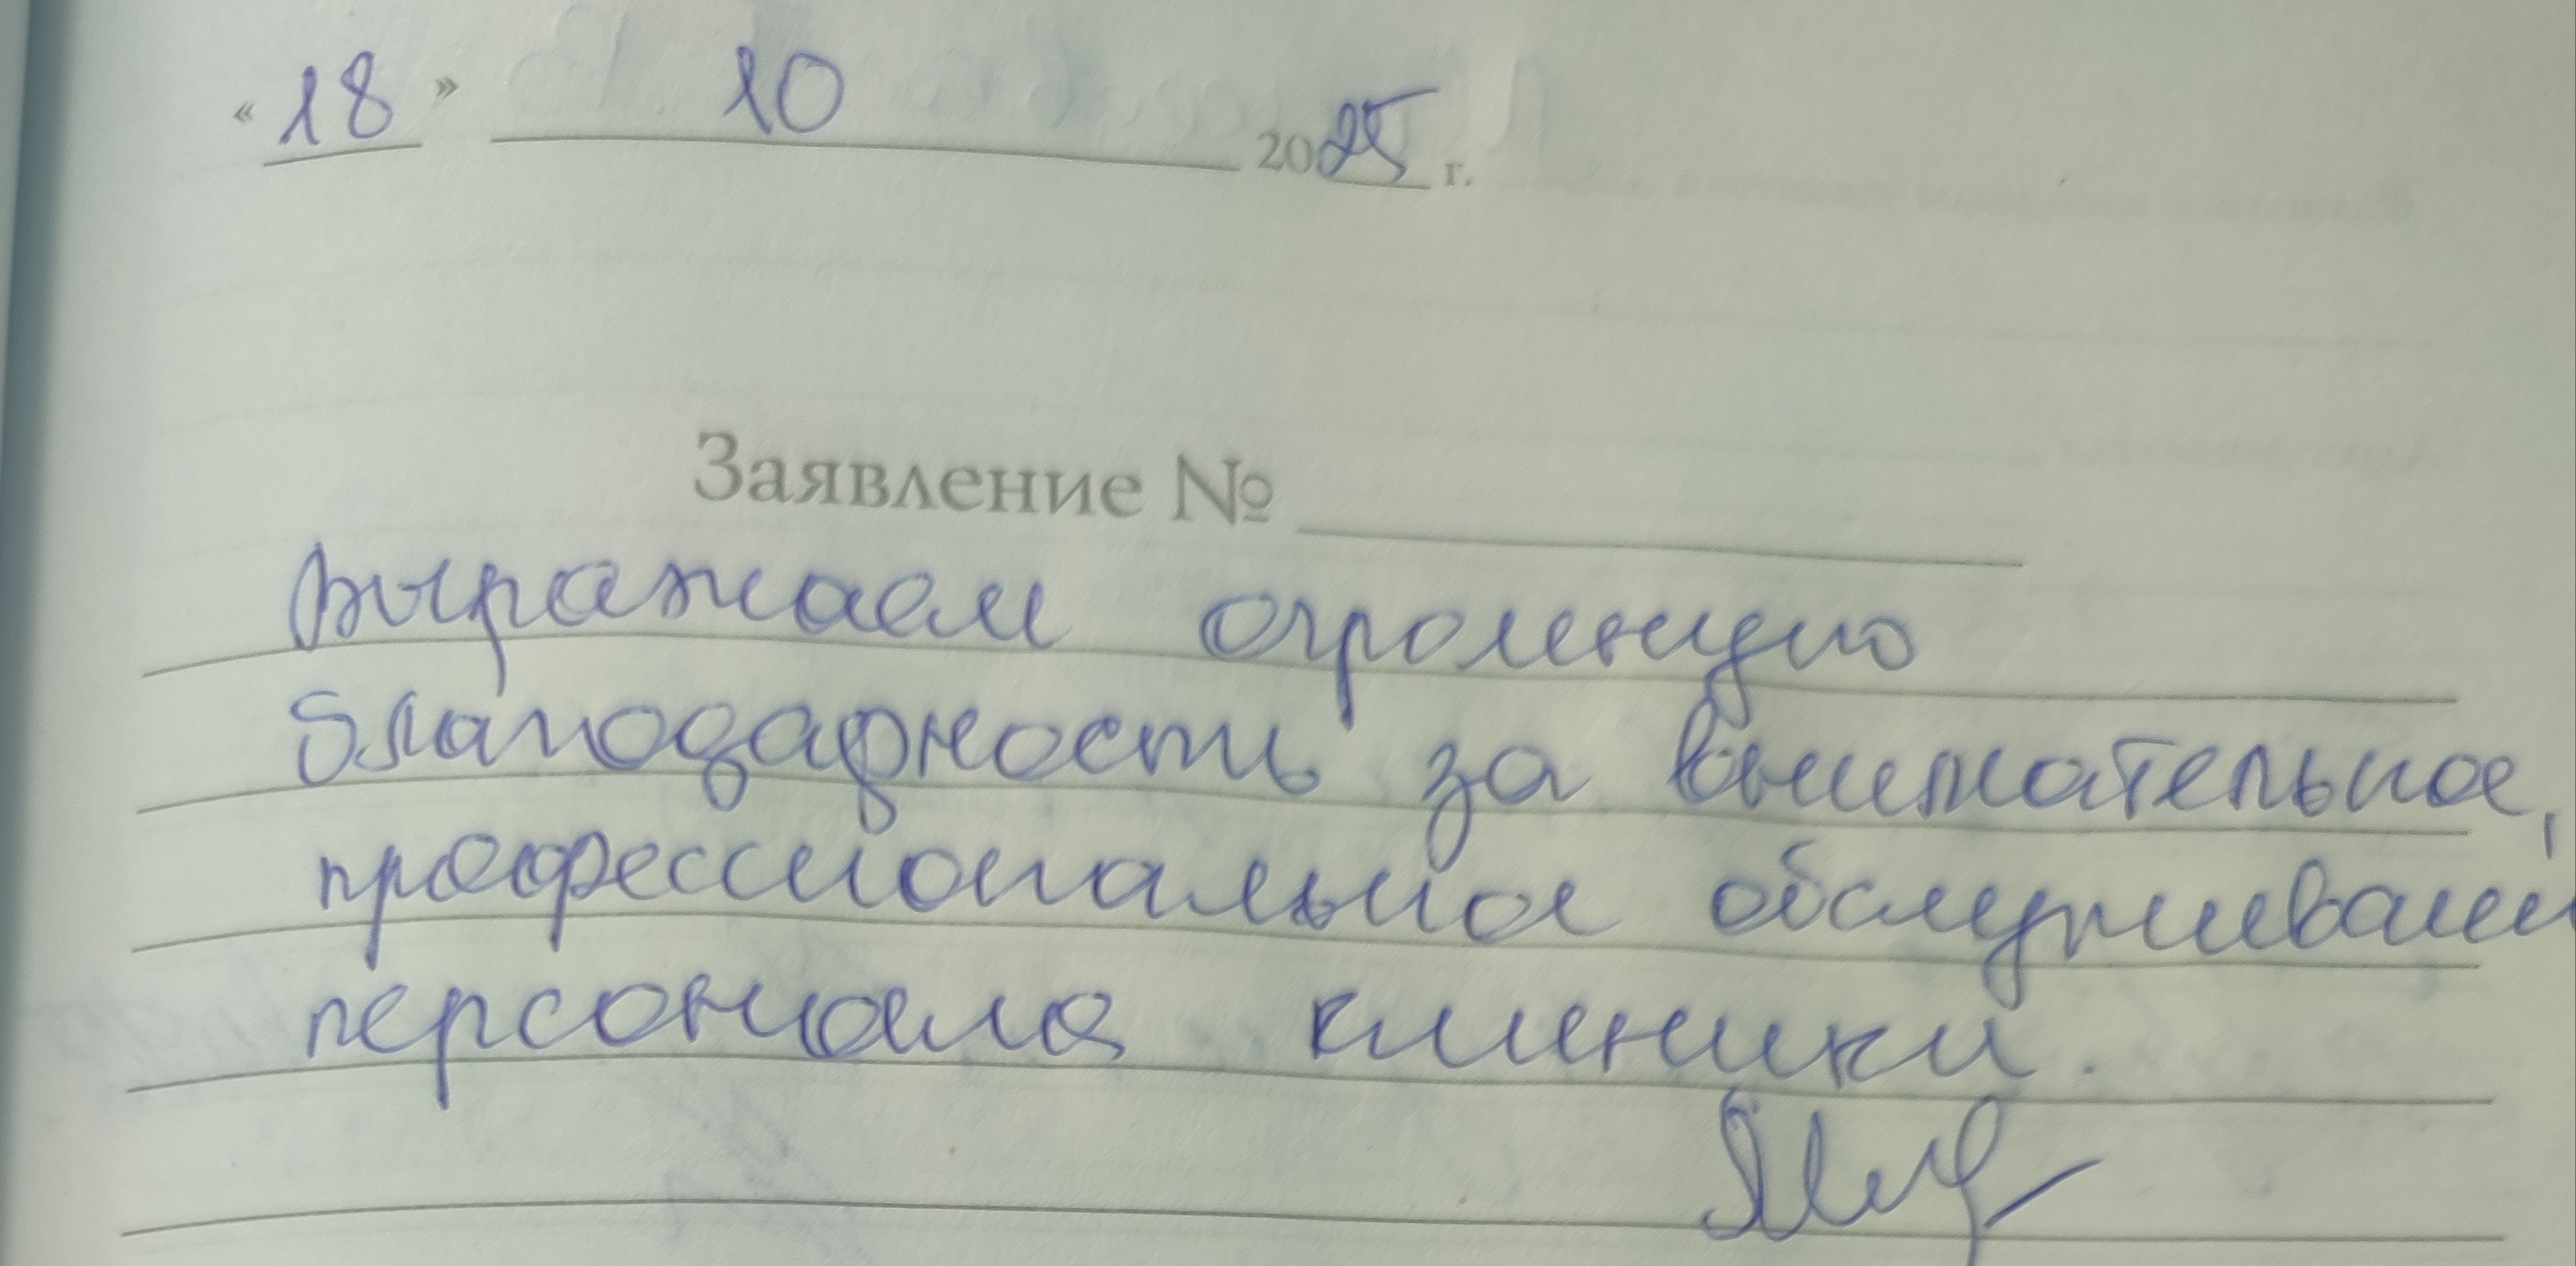 « 18 » 10 2025 г.
Заявление №
Выражаем огромную
благодарность за внимательное,
профессиональное обслуживани
персонала клиники.